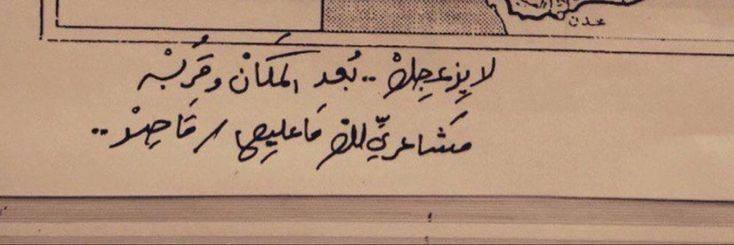 عدن
لا يزعجك .. بُعد المكَانْ وقُربْه
مَشاعريِّ للك مَا عليها فَاصِلْ ..